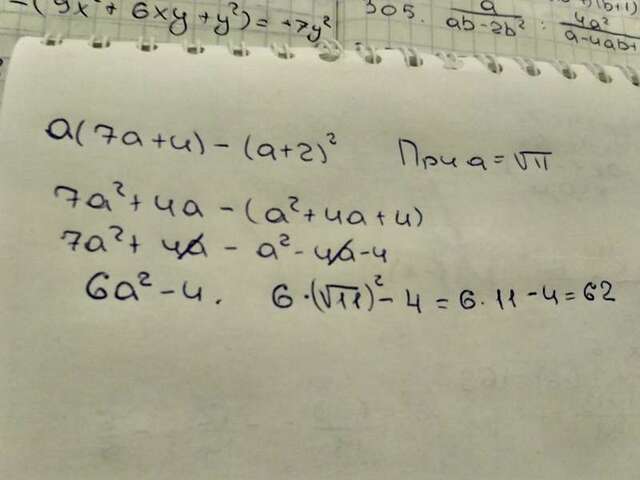 -(9x² + 6xy + y²) = +7y² 305. a/(ab-2b²) : 4a²/(a-4ab+
a(7a+4) - (a+2)² При a = √11
7a² + 4a - (a² + 4a + 4)
7a² + 4a - a² - 4a - 4
6a² - 4. 6·(√11)² - 4 = 6·11 - 4 = 62